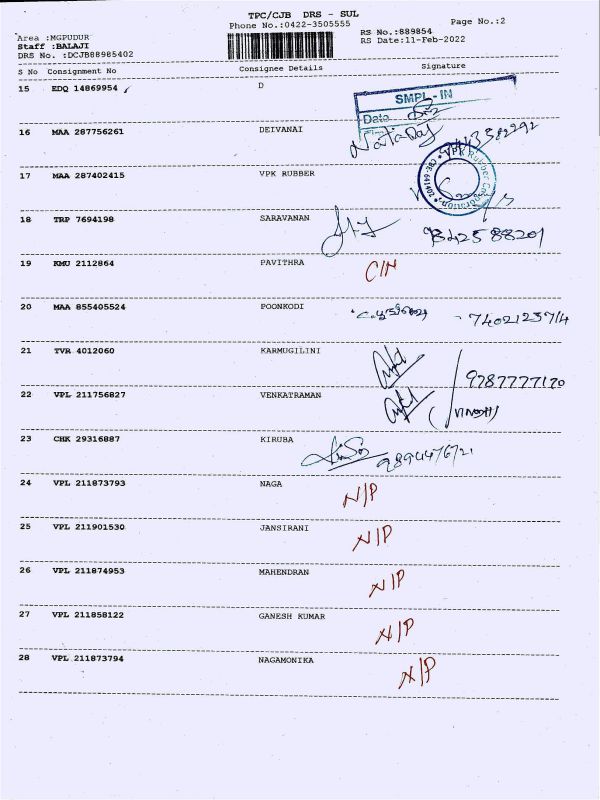 TPC/CJB DRS - SUL
Phone No.:0422-3505555
Page No.:2
Area :MGPUDUR
RS No.:889854
Staff :BALAJI
RS Date:11-Feb-2022
DRS No. :DCJB88985402
S No Consignment No Consignee Details Signature
15 EDQ 14869954 D
SMPL - IN
Date
16 MAA 287756261 DEIVANAI
17 MAA 287402415 VPK RUBBER
VPK Rubber Corporation
18 TRP 7694198 SARAVANAN
9342588201
19 KMU 2112864 PAVITHRA C/N
20 MAA 855405524 POONKODI
21 TVR 4012060 KARMUGILINI
9787777170
22 VPL 211756827 VENKATRAMAN
23 CHK 29316887 KIRUBA
9894476721
24 VPL 211873793 NAGA N/P
25 VPL 211901530 JANSIRANI N/P
26 VPL 211874953 MAHENDRAN N/P
27 VPL 211858122 GANESH KUMAR N/P
28 VPL 211873794 NAGAMONIKA N/P